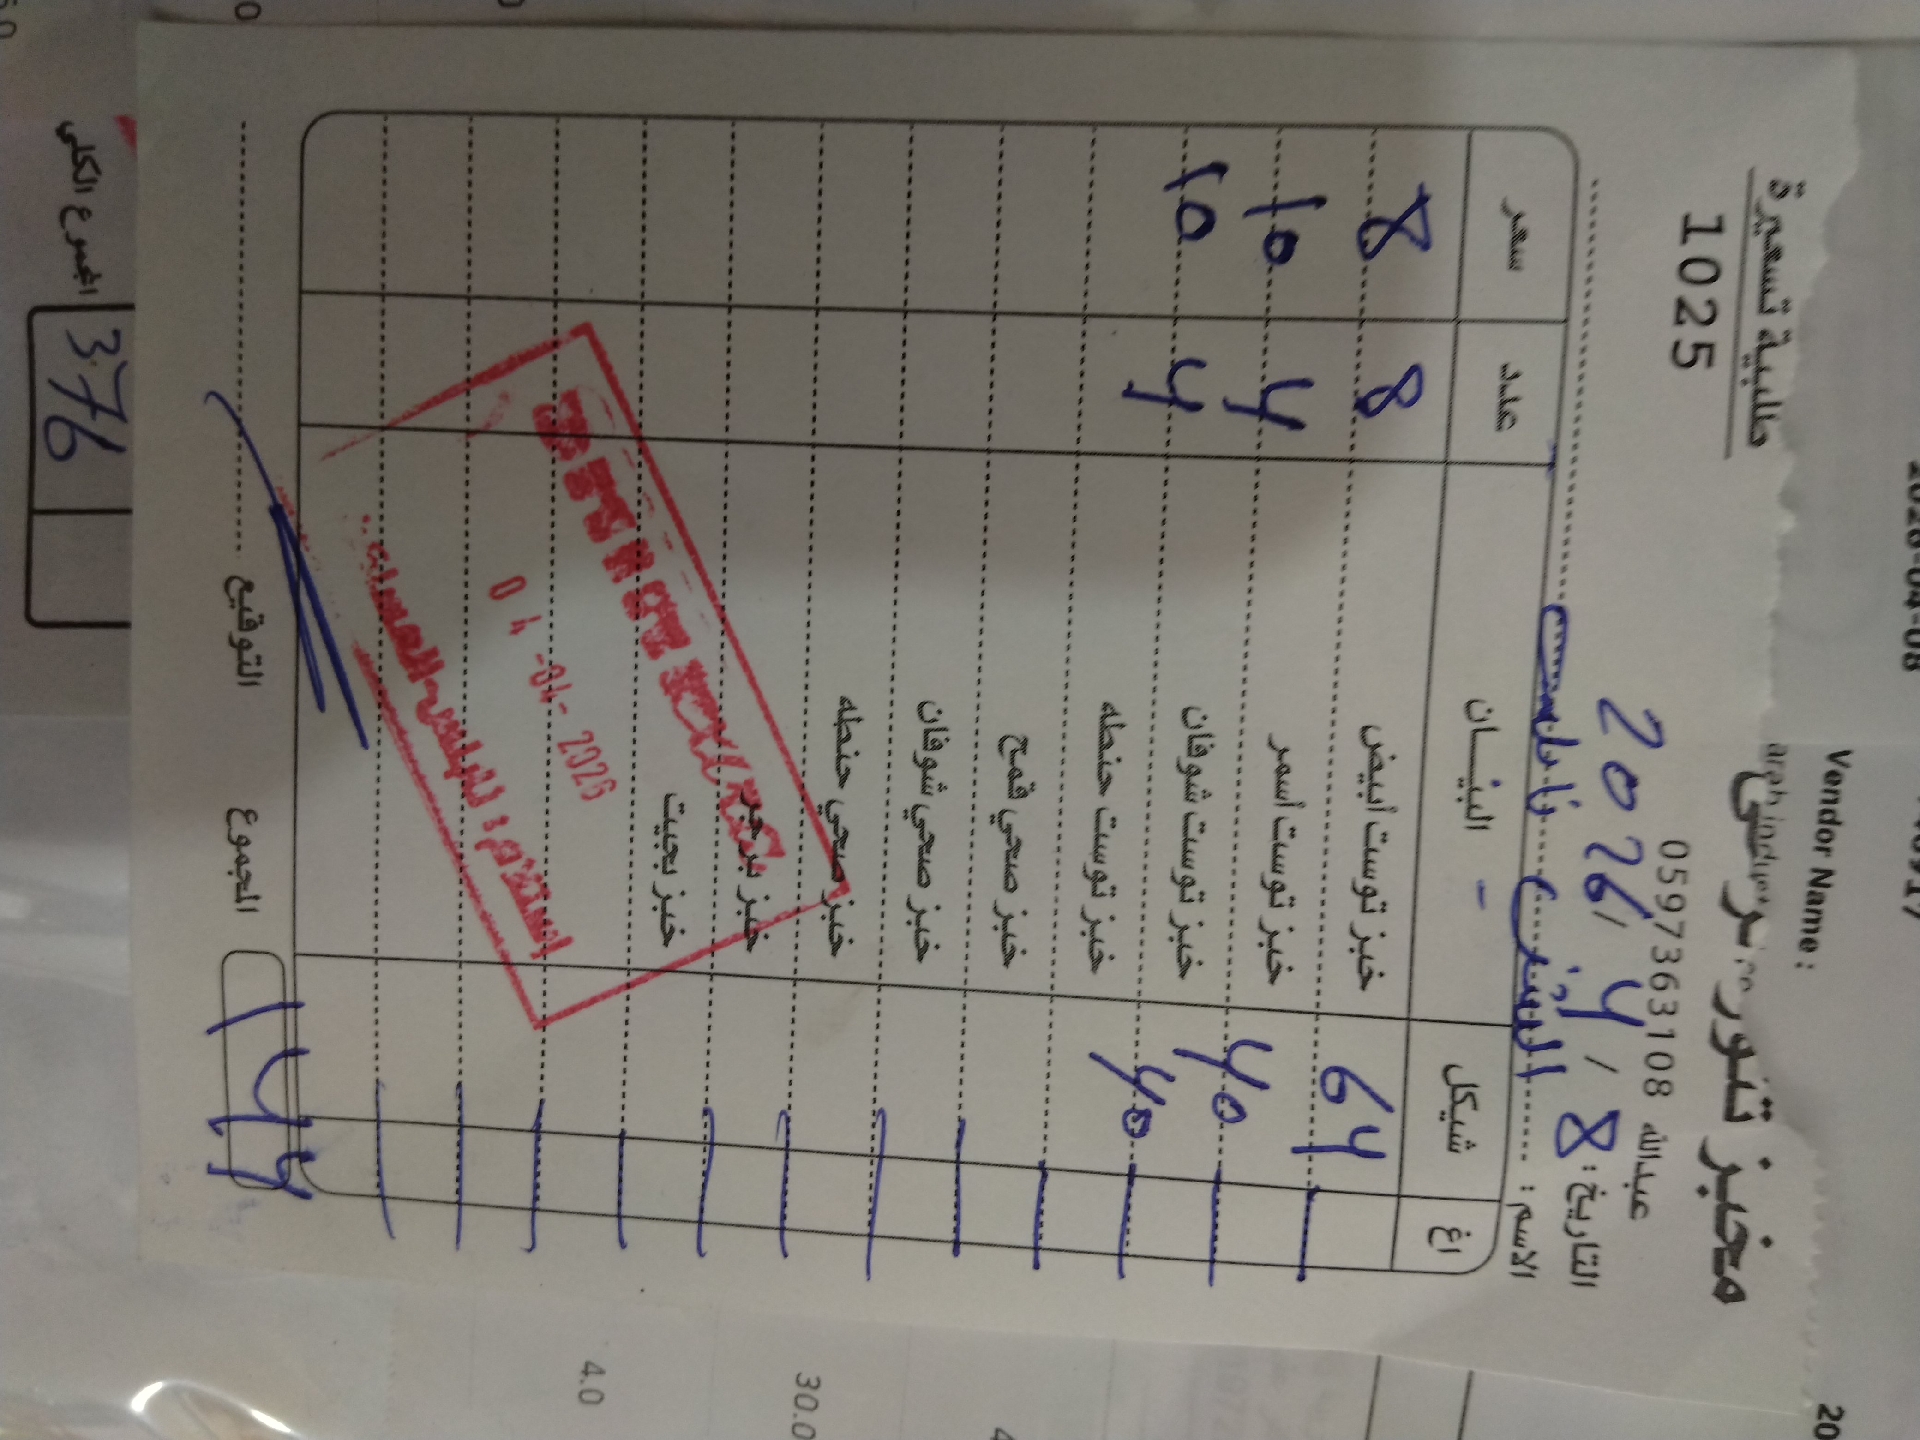 Vendor Name :
طلبية تسعيرة
1025
مخبز تنور مرسى
0597363108 عبدالله
التاريخ : 8 / 4 / 2026
الاسم :
سعر عدد البيــان شيكل اغ
8 8 خبز توست أبيض 64
10 4 خبز توست أسمر 40
10 4 خبز توست شوفان 40
خبز توست حنطه
خبز صحي قمح
خبز صحي شوفان
خبز صحي حنطه
خبز برجر
خبز بجيت
04 -04- 2026
المجموع 144
التوقيع
المجموع الكلي
376
4.0
30.0
2026-04-08